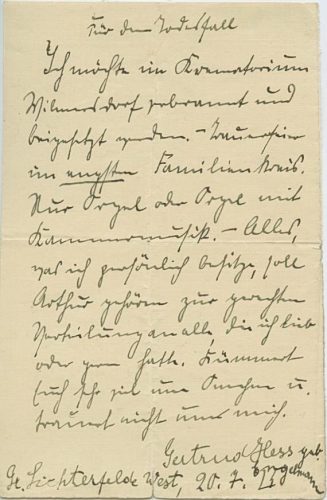 Für den Todesfall
Ich möchte im Krematorium
Wilmersdorf gebrannt und
beigesetzt werden. – Trauerfeier
im engsten Familienkreis.
Nur Orgel oder Orgel mit
Kammermusik. – Alles,
was ich persönlich besitze, soll
Arthur gehören zur gerechten
Verteilung an alle, die ich lieb
oder gern hatte. Kümmert
Euch sehr um u.
trauert nicht um mich.
Gertrud Hess geb.
Engelmann
Gr. Lichterfelde West, 20. 7.